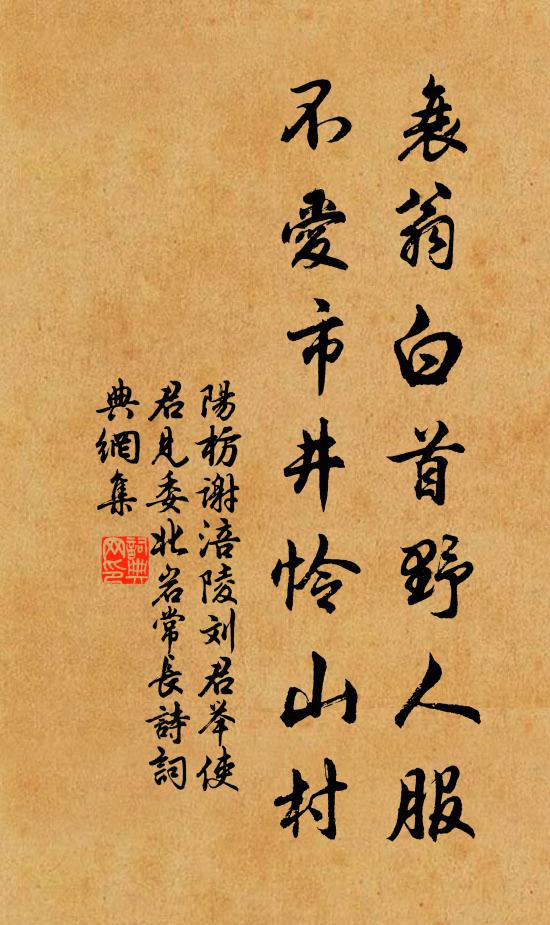 衰翁白首野人服
不愛市井怜山村
陽枋謝涪陵刘君举使
君見委北岩常長詩詞
典網集
詞典網印